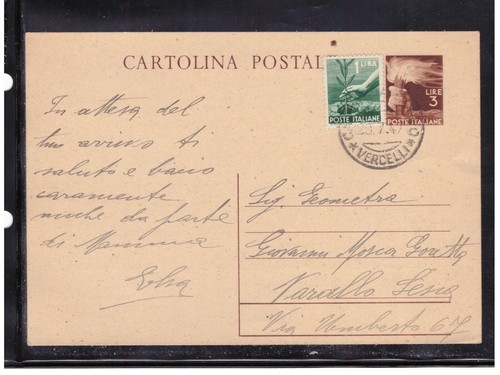 CARTOLINA POSTAL
1 LIRA
POSTE ITALIANE
LIRE
3
POSTE ITALIANE
7.47
VERCELLI
In attesa del
tuo arrivo ti
saluto e bacio
caramente
anche da parte
di Mamma
Elsa
Sig. Geometra
Giovanni Mosca Goretta
Varallo Sesia
Via Umberto 67